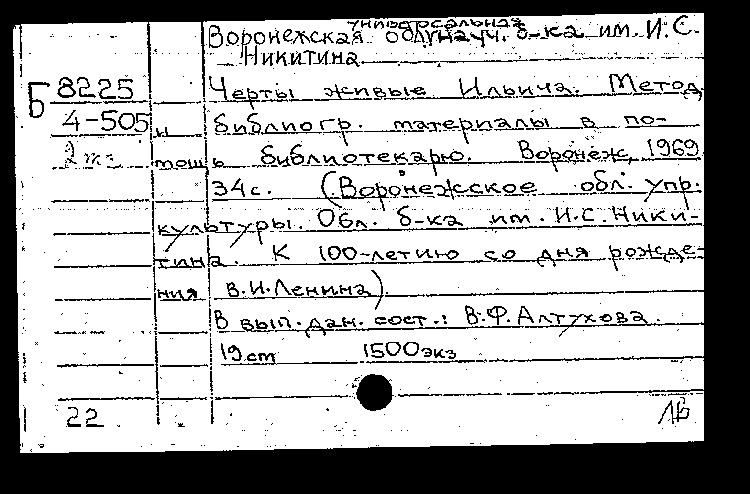 универсальная
Воронежская обл. науч. б-ка им. И.С.
Никитина
Б 8225 Черты живые Ильича. Метод.
4-505 и библиогр. материалы в по-
2 жз мощь библиотекарю. Воронеж, 1969
34с. (Воронежское обл. упр.
культуры. Обл. б-ка им. И.С. Ники-
тина. К 100-летию со дня рожде-
ния В.И.Ленина)
В вып. дан. сост.: В.Ф.Алтухова.
19 ст 1500 экз
22 ЛВ